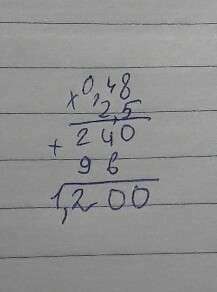 × 0,48
2,5
+ 240
96
1,200